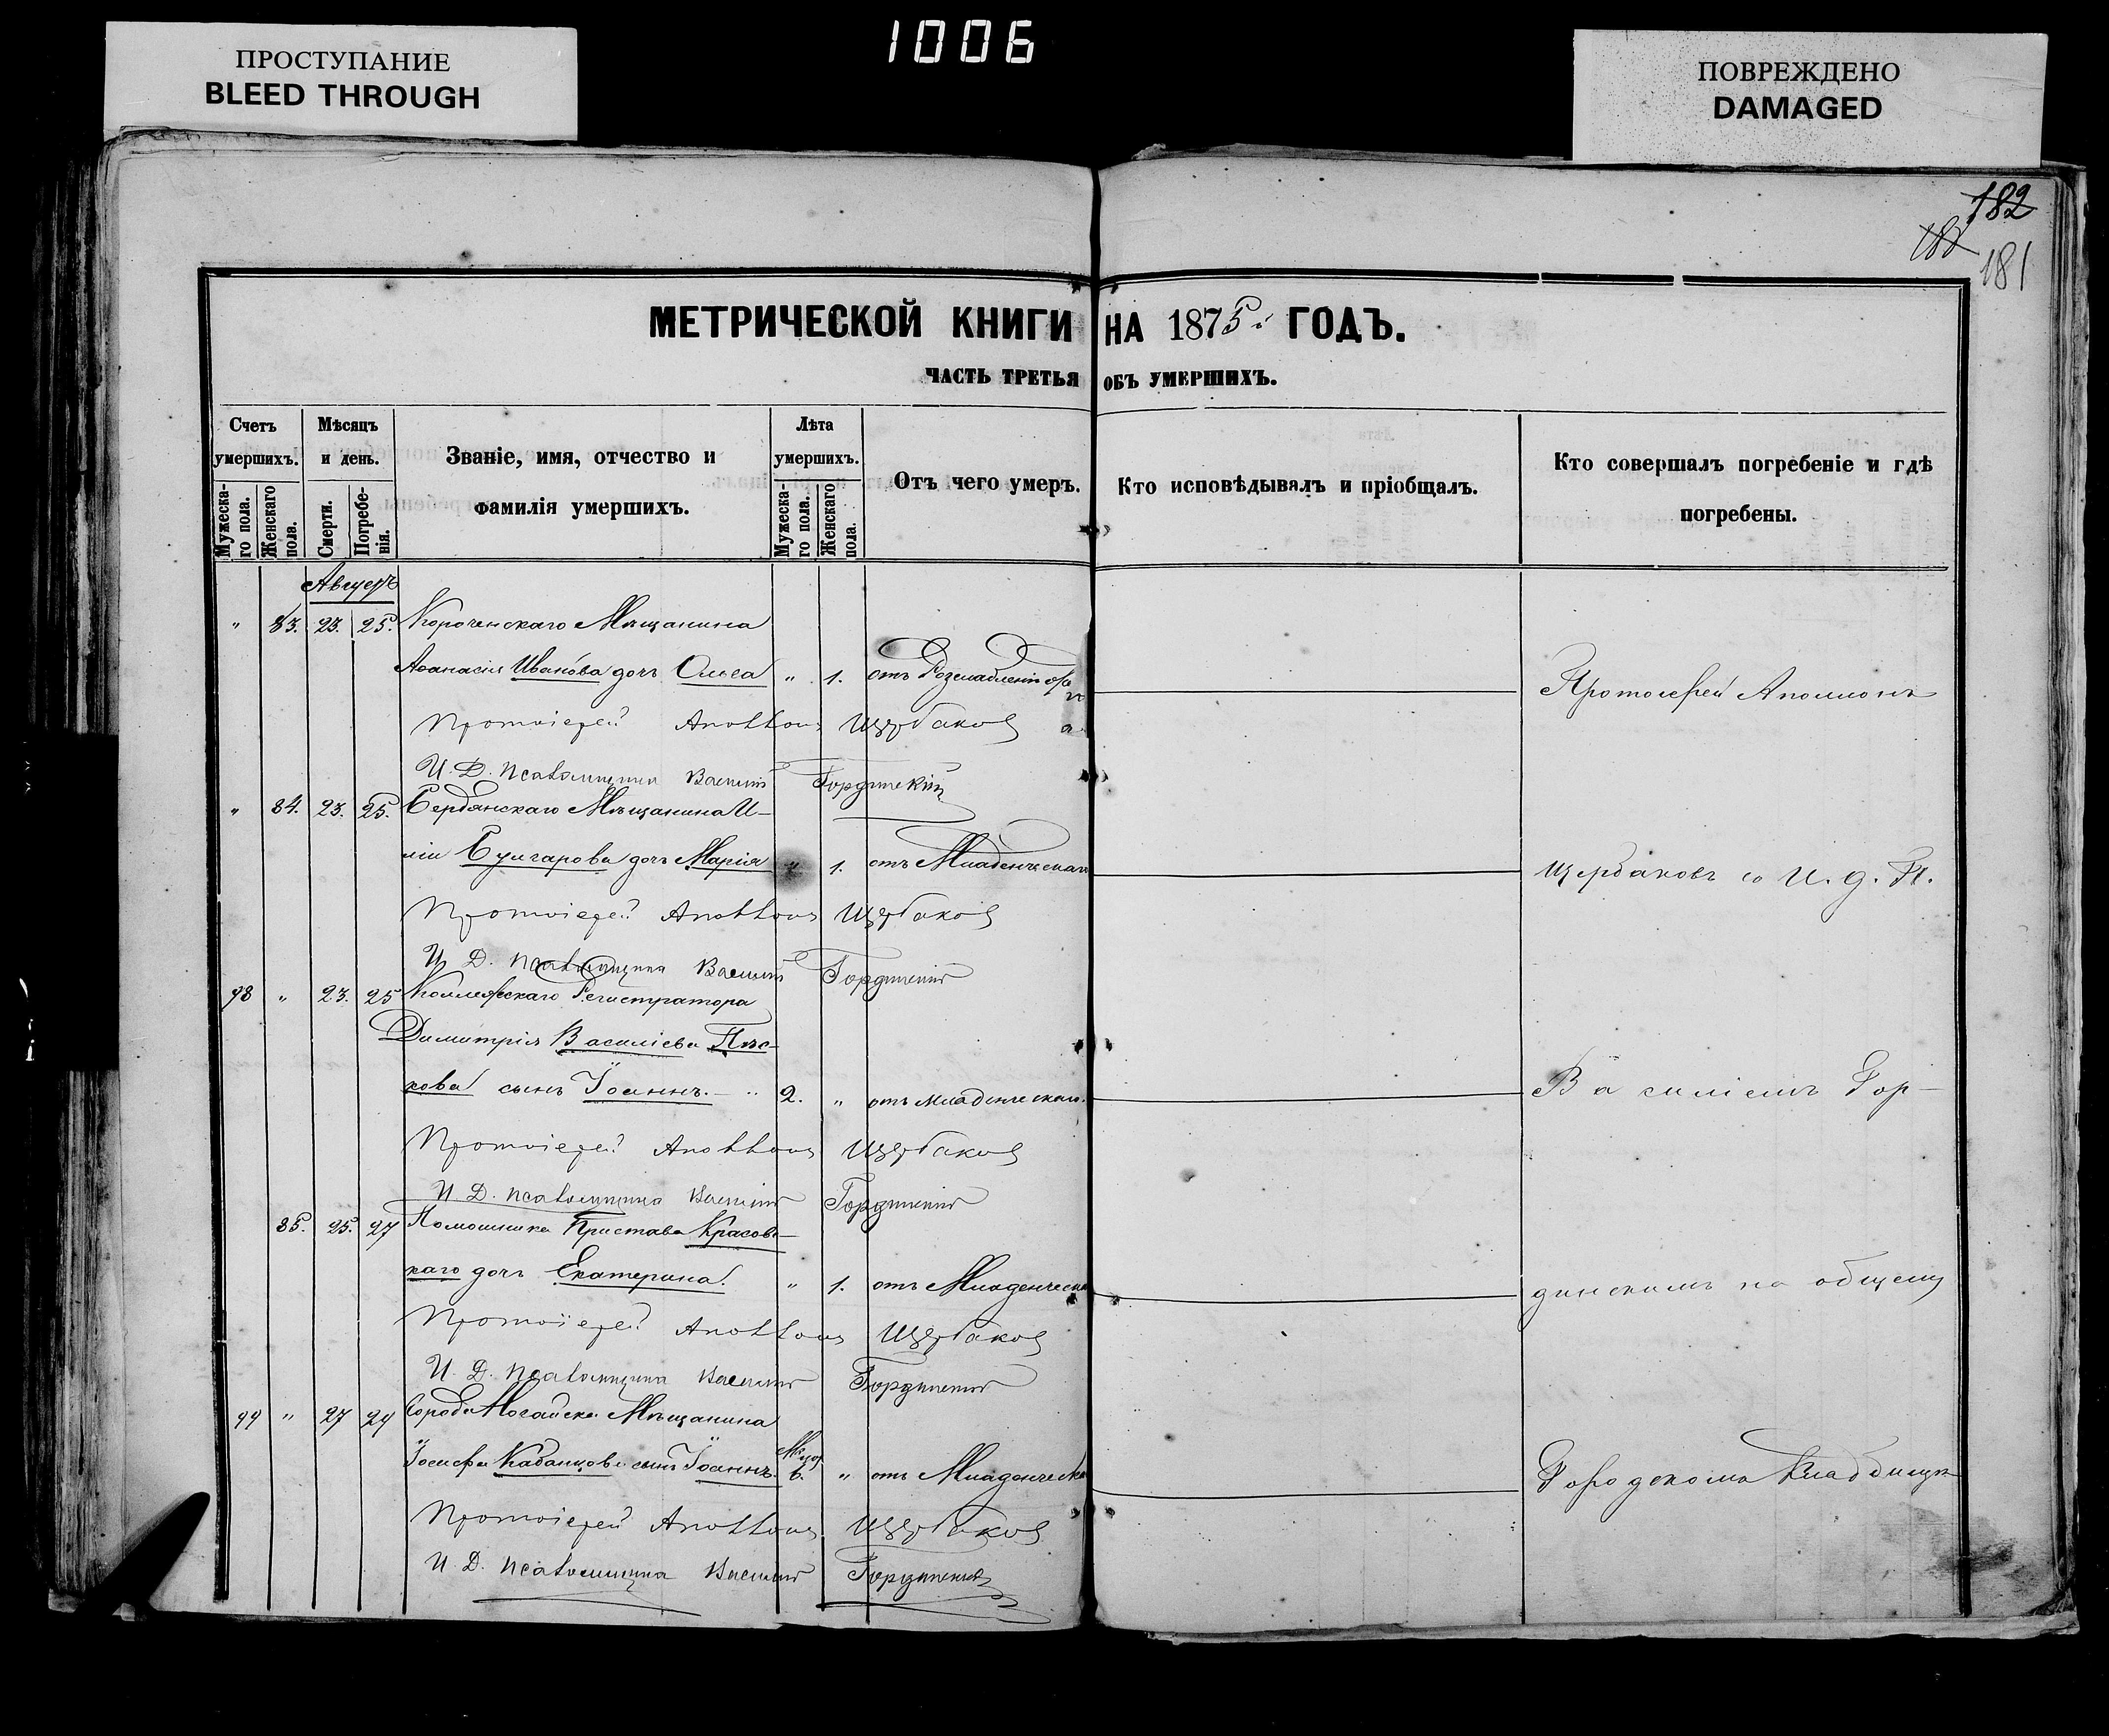 ПРОСТУПАНИЕ
BLEED THROUGH
1006
ПОВРЕЖДЕНО
DAMAGED
182
181
МЕТРИЧЕСКОЙ КНИГИ НА 1875й ГОДЪ.
ЧАСТЬ ТРЕТЬЯ ОБЪ УМЕРШИХЪ.
Счетъ умершихъ.
Мужеска-го пола.
Женскаго пола.
Мѣсяцъ и день.
Смерти.
Погребе-нія.
Званіе, имя, отчество и фамилія умершихъ.
Лѣта умершихъ.
Мужеска-го пола.
Женскаго пола.
Отъ чего умеръ.
Кто исповѣдывалъ и пріобщалъ.
Кто совершалъ погребеніе и гдѣ погребены.
Августъ
" 83. 23. 25. Короченскаго Мѣщанина
Аѳанасія Иванова дочь Ольга " 1. отъ Протоіерей Аполлонъ
Протоіерей Аполлонъ Щербаковъ
И. Д. Псаломщика Василій Гординскій
" 84. 23. 25. Бердянскаго Мѣщанина И-
ліи Булгарова дочь Марія " 1. отъ Младенческаго Щербаковъ со И. д. П.
Протоіерей Аполлонъ Щербаковъ
И. Д. Псаломщика Василій Гординскій
98 " 23. 25 Коллежскаго Регистратора
Димитрія Василіева Пѣс-
кова сынъ Іоаннъ. 2. " отъ младенческаг. Василіемъ Гор-
Протоіерей Аполлонъ Щербаковъ
И. Д. Псаломщика Василій Гординскій
85. 25. 27 Помошника Пристава Красовс-
каго дочь Екатерина. " 1. отъ Младенческа динскимъ на общему
Протоіерей Аполлонъ Щербаковъ
И. Д. Псаломщика Василій Гординскій
99 " 27 29 Города Ногайска Мѣщанина
Іосифа Кабанцова сынъ Іоаннъ. 6. " отъ Младенческа Городскома Кладбищѣ
Протоіерей Аполлонъ Щербаковъ
И. Д. Псаломщика Василій Гординскій